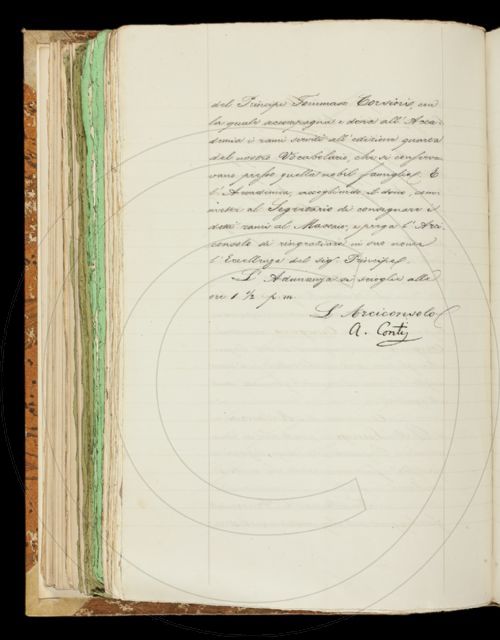 del Principe Tommaso Corsini, con
la quale accompagna e dona all'Acca-
demia i rami serviti all'edizione quarta
del nostro Vocabolario, che si conserva-
vano presso quella nobil famiglia. E
l'Accademia, accogliendo il dono, com-
mette al Segretario di consegnare i
detti rami al Massaio, e prega l'Arci-
consolo di ringraziare in suo nome
l'Eccellenza del sig. Principe.
L'Adunanza si scioglie alle
ore 1 ½ p. m.
L'Arciconsolo
A. Conti